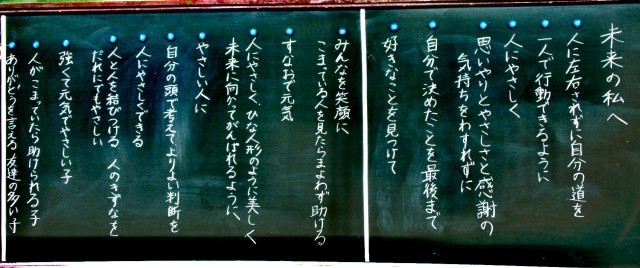 未来の私へ
人に左右されずに自分の道を
一人で行動できるように
人にやさしく
思いやりとやさしさと感謝の
気持ちをわすれずに
自分で決めたことを最後まで
好きなことを見つけて
みんなを笑顔に
こまっている人を見たらまよわず助ける
すなおで元気
人にやさしく、ひな人形のように美しく
未来に向かってがんばれるように、
やさしい人に
自分の頭で考えてよりよい判断を
人にやさしくできる
人と人を結びつける 人のきずなを
だれにでもやさしい
強くて元気でやさしい子
人がこまっていたら助けられる子
ありがとうを言える 友達の多い子